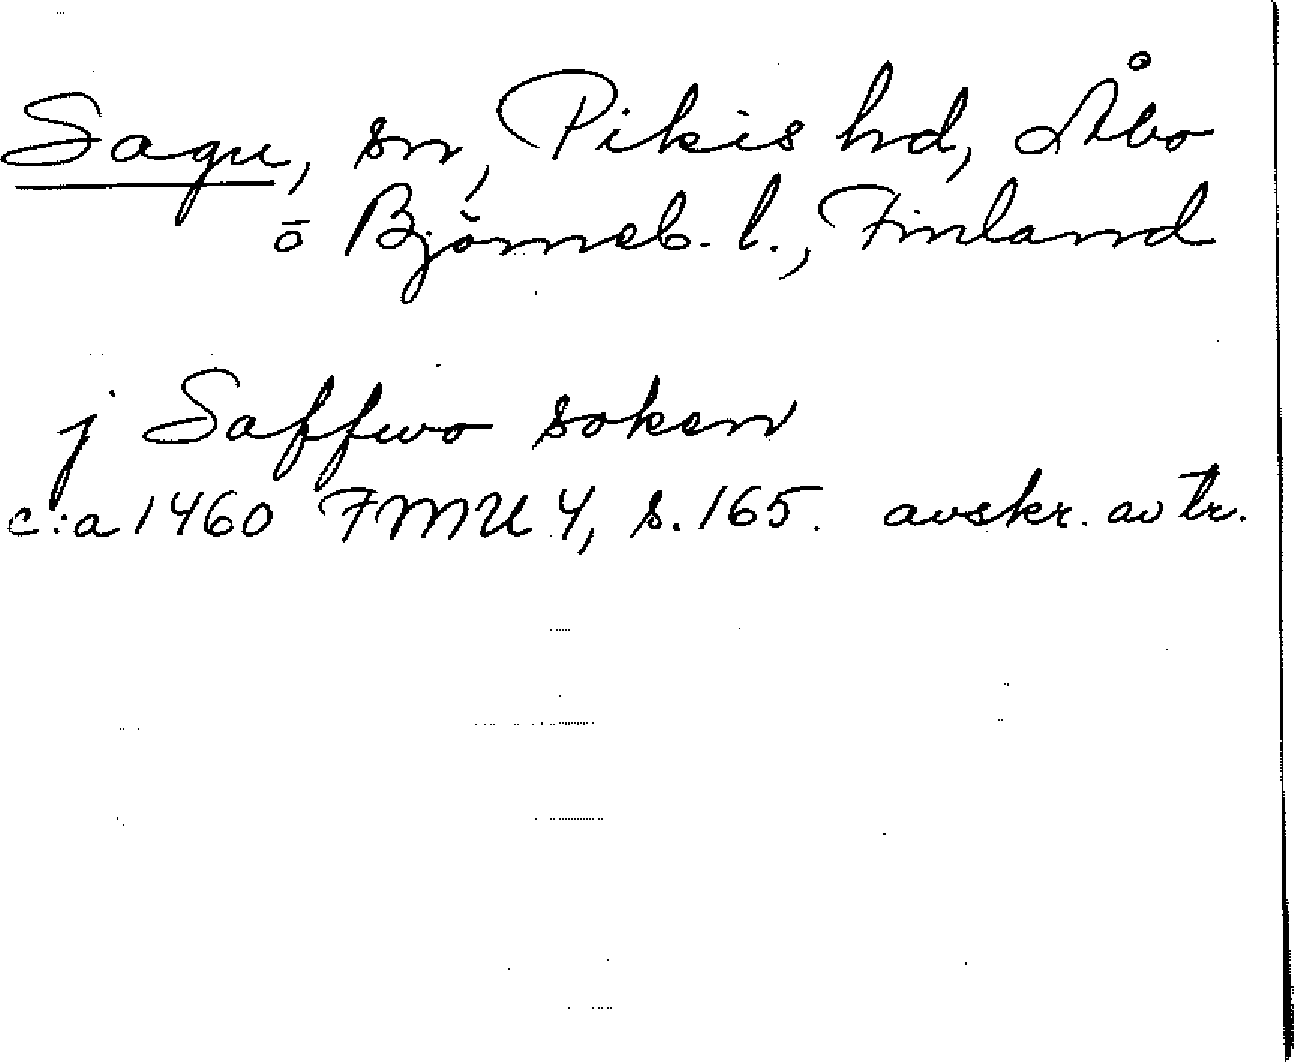 Sagu, sn, Pikis hd, Åbo
o Björneb. l., Finland
j Saffwo soken
c:a 1460 FMU 4, s. 165. avskr. av tr.